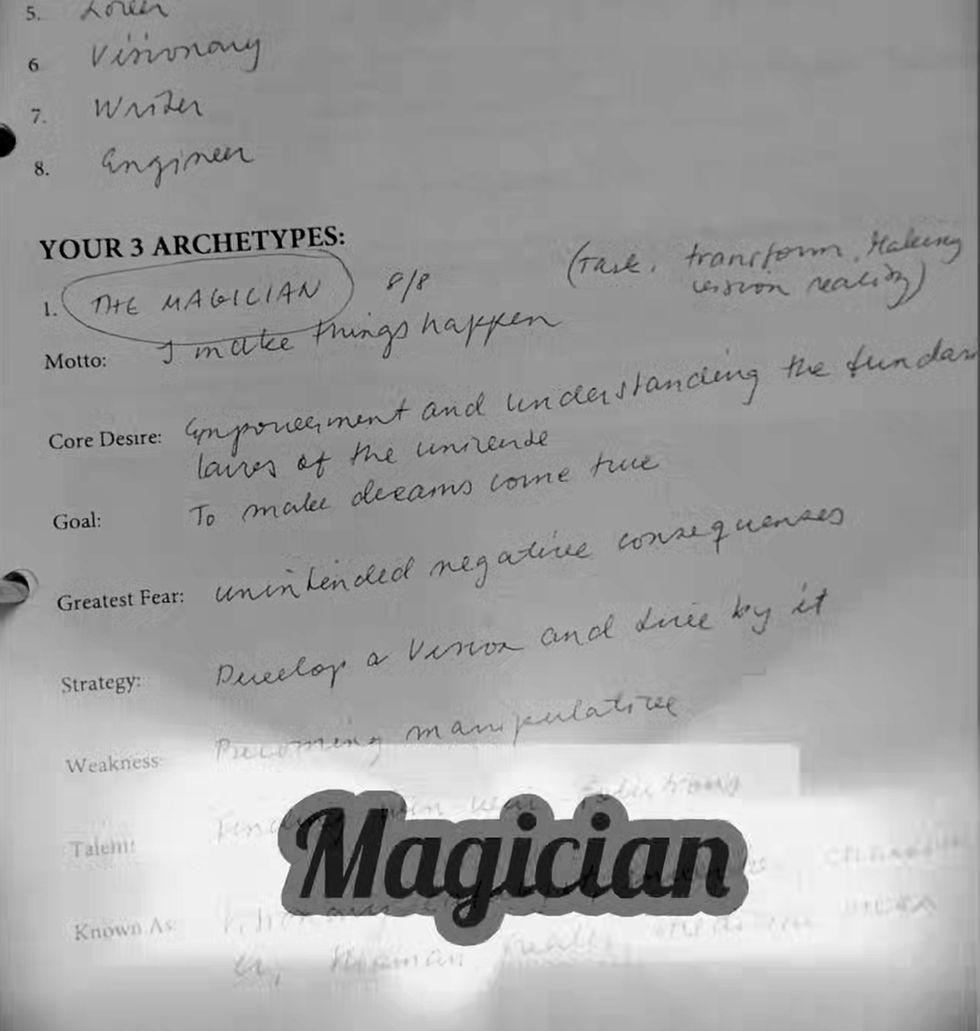 5. Lover
6 Visionary
7. Writer
8. Engineer
YOUR 3 ARCHETYPES:
1. THE MAGICIAN 8/8 (Task. transform, Making
vision reality)
Motto: I make things happen
Core Desire: Empowerment and understanding the fundam
laws of the universe
Goal: To make dreams come true
Greatest Fear: unintended negative consequenses
Strategy: Develop a Vision and live by it
Weakness Becoming manipulative
Talent: win win Solutions
Magician
Known As: